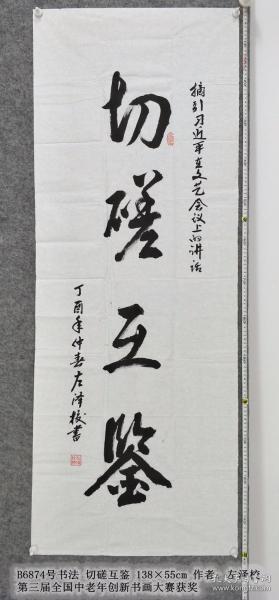 摘引习近平在文艺会议上的讲话
切磋互鉴
丁酉年仲春左泽校书
B6874号书法 切磋互鉴 138×55cm 作者 左泽校
第三届全国中老年创新书画大赛获奖